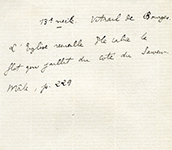 13e siècle. Vitrail de Bourges.
L'Eglise recueille
flot qui jaillit du côté du Sauveur
Mâle, p. 229